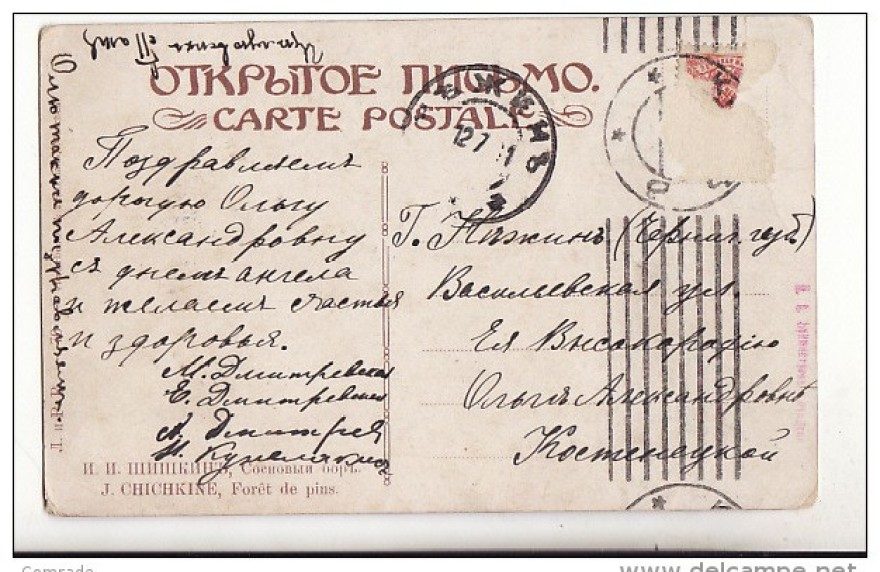 ОТКРЫТОЕ ПИСЬМО.
CARTE POSTALE
Поздравляемъ
дорогую Ольгу
Александровну
съ днемъ ангела
и желаемъ счастья
и здоровья.
М. Дмитревская
Е. Дмитревская
Дмитрев
Г. Нѣжинъ (Черниг. губ.)
Васильевская ул.
Ея Высокородію
Ольгѣ Александровнѣ
Костенецкой
НѢЖИНЪ
12 7 11
И. И. ШИШКИНЪ, Сосновый боръ.
J. CHICHKINE, Forêt de pins.
Comrade
www.delcampe.net